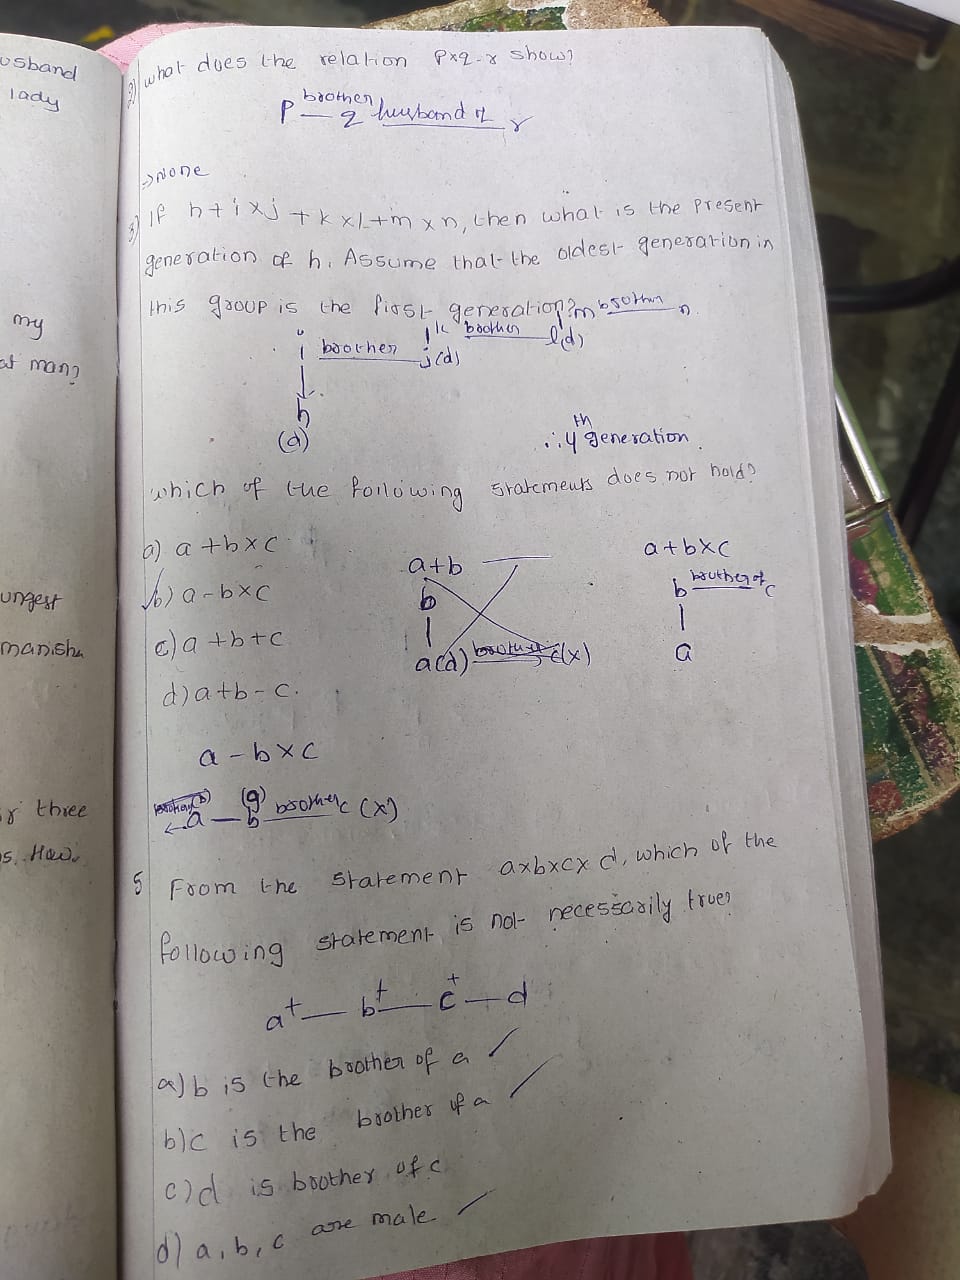 usband
lady
my
at man?
ungest
manisha
r three
s. How
2) what does the relation p×q-r show?
brother
p — q husband of r
→ None
3) If h+i×j+k×l+m×n, then what is the present
generation of h. Assume that the oldest generation in
this group is the first generation?
m brother n
k brother l(d)
i brother j(d)
h
(d)
∴ 4th generation.
which of the following statements does not hold?
a) a+b×c
b) a-b×c
c) a+b+c
d) a+b-c.
a+b
b
a(d) brother c(x)
a+b×c
b brother of c
a
a-b×c
a — b brother c (x)
(g)
5 From the statement a×b×c×d, which of the
following statement is not necessarily true?
a+ — b+ — c+ — d
a) b is the brother of a
b) c is the brother of a
c) d is brother of c
d) a, b, c are male